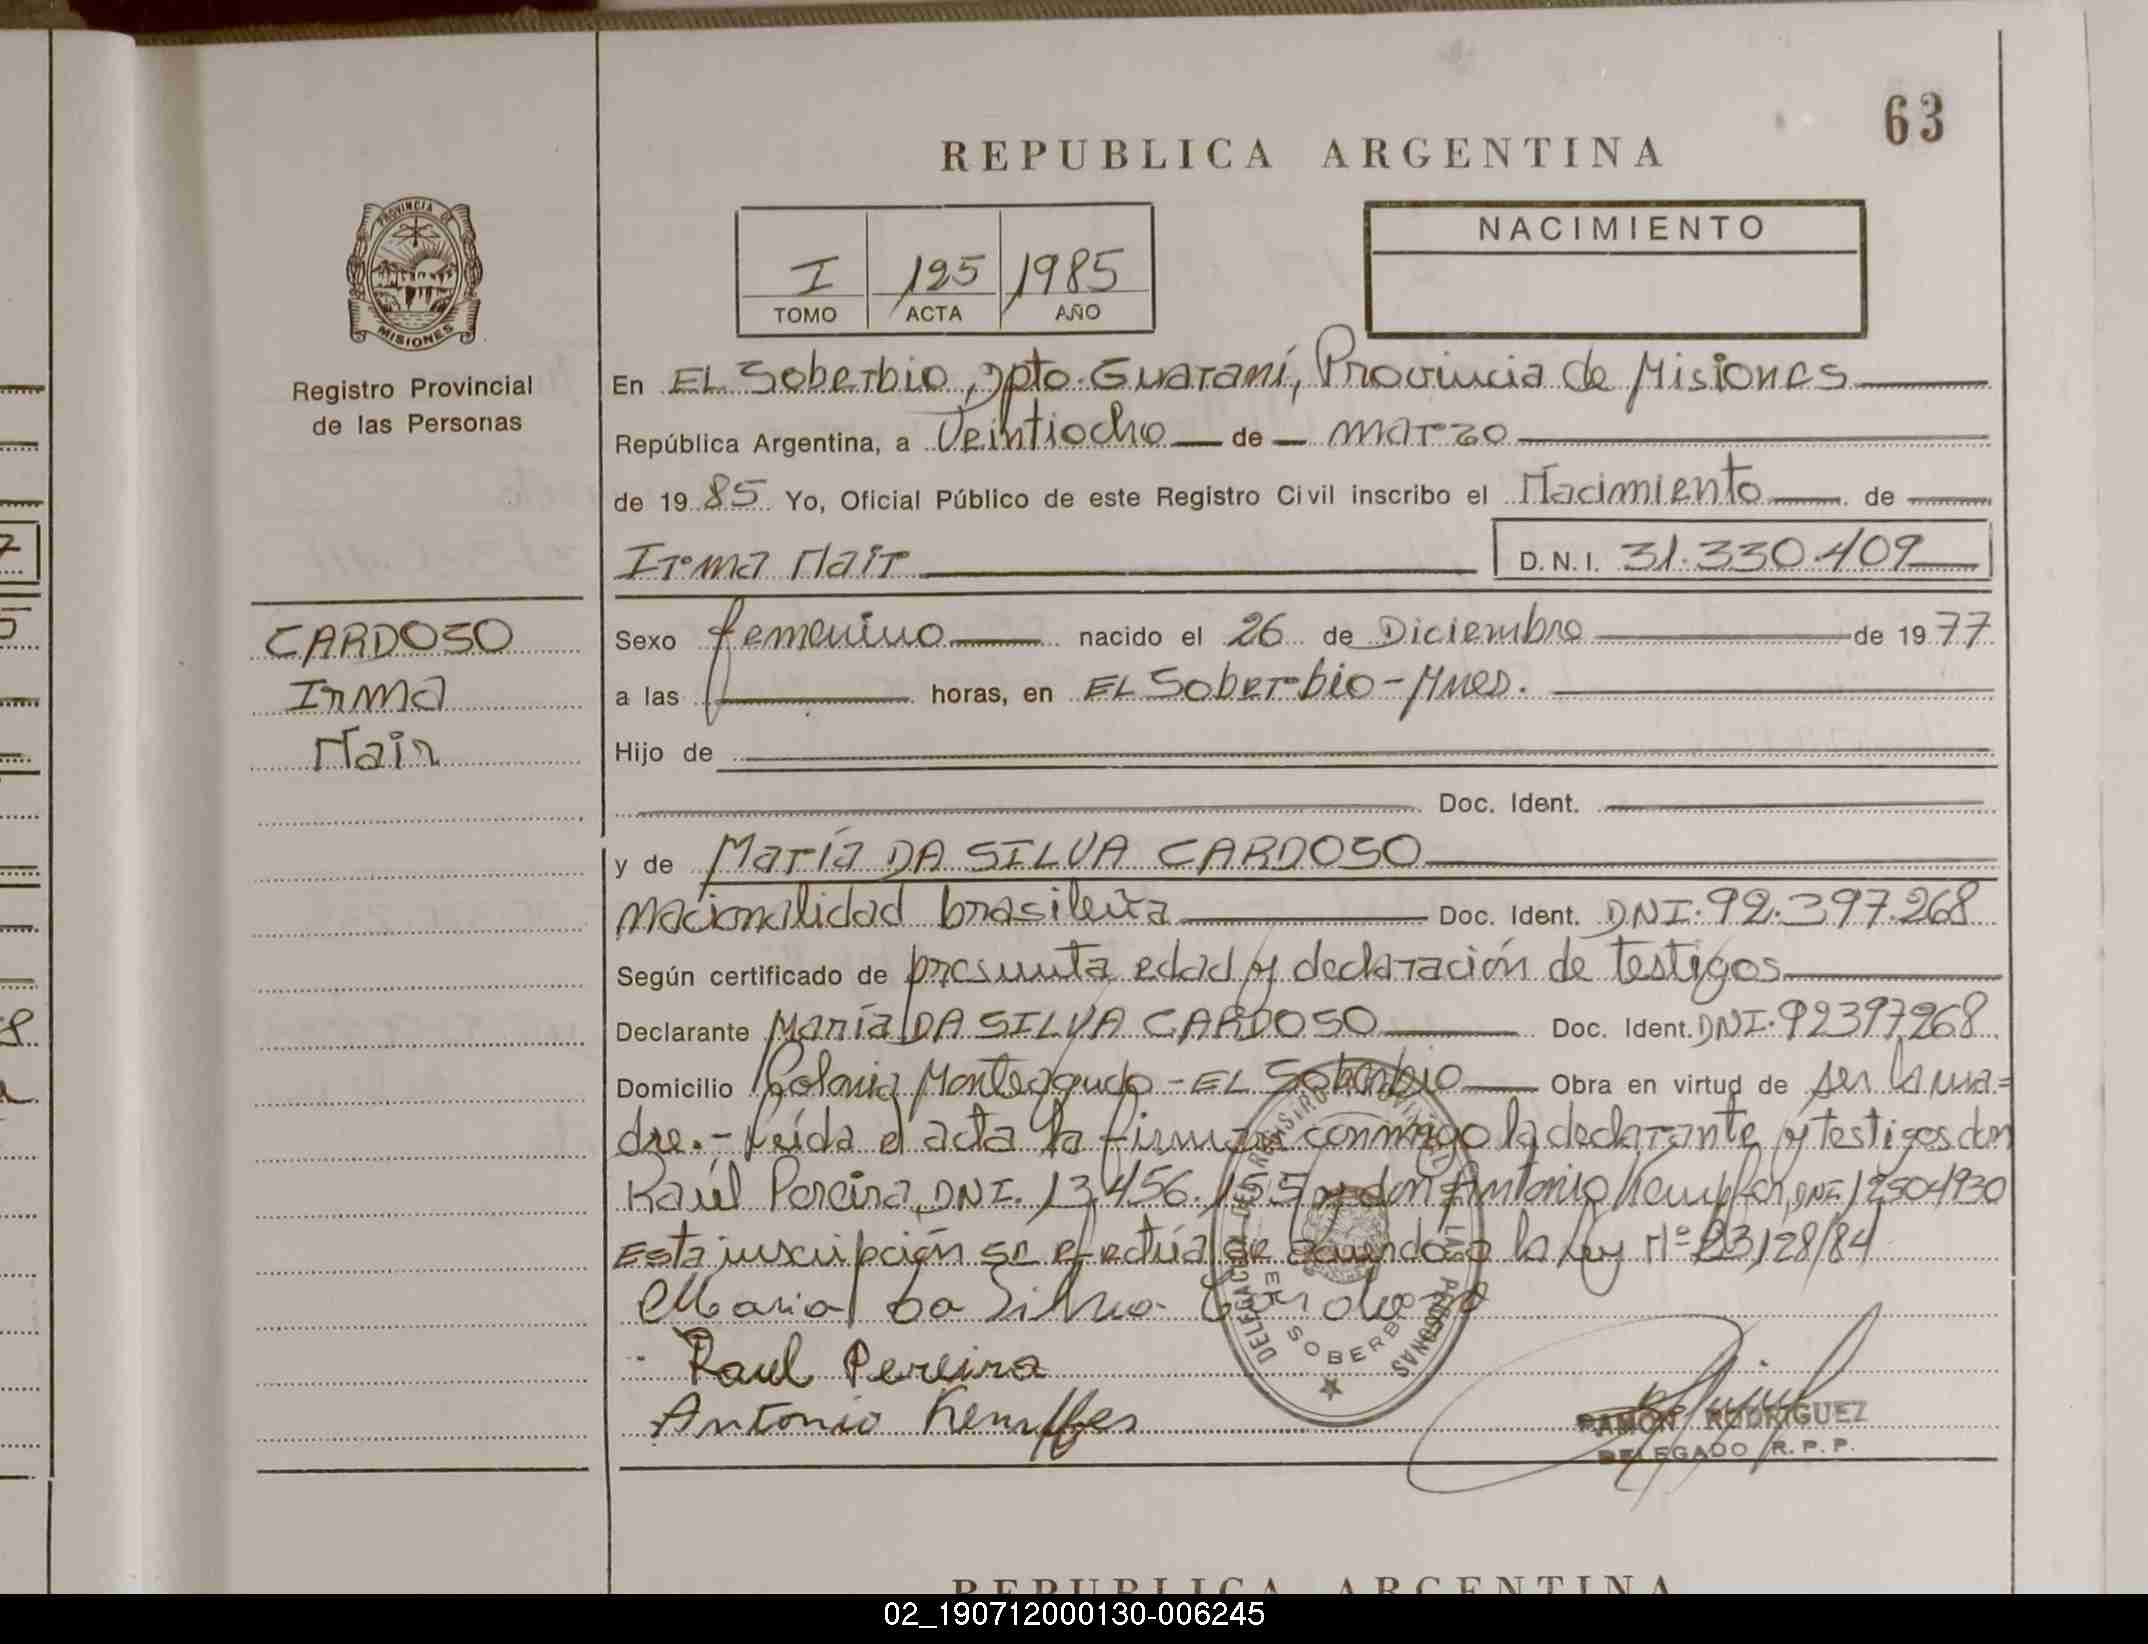 63
REPUBLICA ARGENTINA
NACIMIENTO
I 125 1985
TOMO ACTA AÑO
PROVINCIA DE
MISIONES
Registro Provincial
de las Personas
En EL Soberbio, Dpto. Guaraní, Provincia de Misiones
República Argentina, a Veintiocho de marzo
de 19 85 Yo, Oficial Público de este Registro Civil inscribo el Nacimiento de
Irma Nair D.N.I. 31.330.409
CARDOSO
Irma
Nair
Sexo femenino nacido el 26 de Diciembre de 19 77
a las horas, en EL Soberbio - Mnes.
Hijo de
Doc. Ident.
y de María DA SILVA CARDOSO
nacionalidad brasileña Doc. Ident. DNI. 92.397.268
Según certificado de presunta edad y declaración de testigos
Declarante María DA SILVA CARDOSO Doc. Ident. DNI. 92397268
Domicilio Colonia Monteagudo - EL Soberbio Obra en virtud de ser la ma=
dre.- Leída el acta la firman conmigo la declarante y testigos don
Raúl Pereira, DNI. 13.456.155 y don Antonio Kempfer, DNI 12504930
Esta inscripción se efectúa de acuerdo a la Ley Nº 23128/84
Maria da Silva Cardoso
Raul Pereira
Antonio Kempfer
DELEGACION DEL REGISTRO PROVINCIAL DE LAS PERSONAS
EL SOBERBIO
RAMON RODRIGUEZ
DELEGADO R.P.P.
REPUBLICA ARGENTINA
02_190712000130-006245